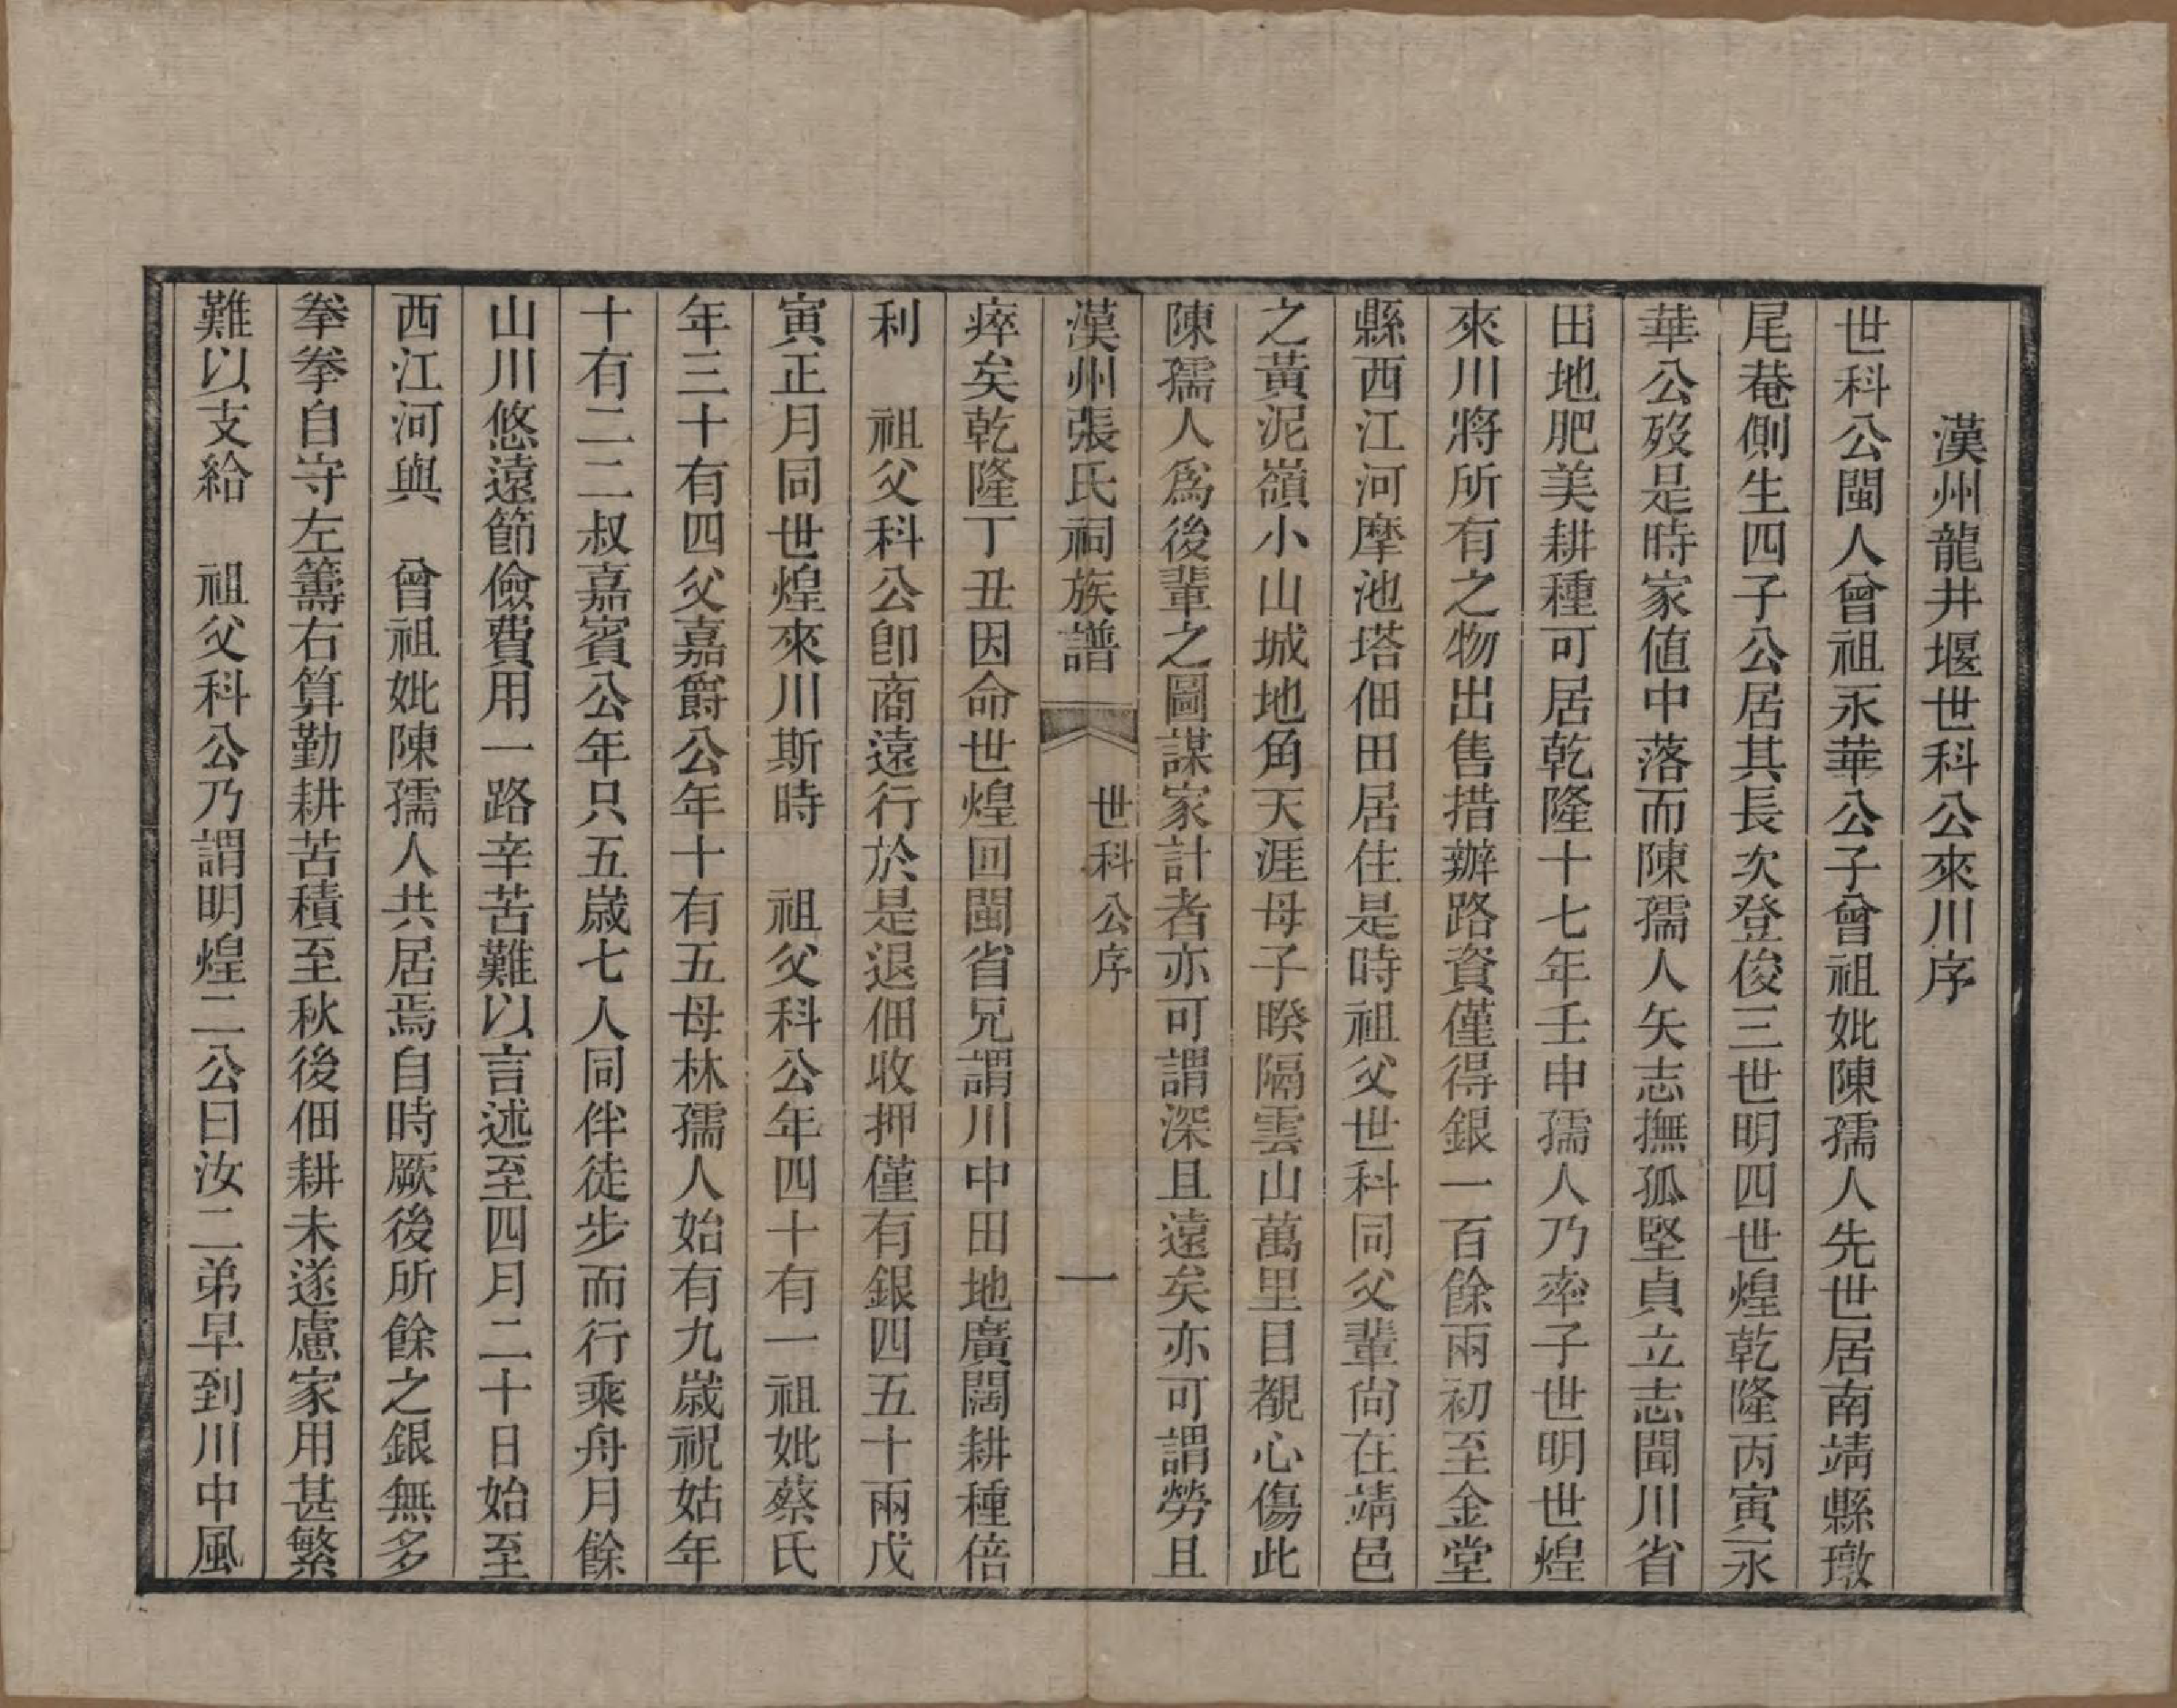 漢州龍井堰世科公來川序
世科公閩人曾祖永華公子曾祖妣陳孺人先世居南靖縣墩
尾菴側生四子公居其長次登俊三世明四世煌乾隆丙寅永
華公歿是時家値中落而陳孺人矢志撫孤堅貞立志聞川省
田地肥美耕種可居乾隆十七年壬申孺人乃率子世明世煌
來川將所有之物出售措辦路資僅得銀一百餘兩初至金堂
縣西江河摩池塔佃田居住是時祖父世科同父輩尙在靖邑
之黃泥嶺小山城地角天涯母子暌隔雲山萬里目覩心傷此
陳孺人爲後輩之圖謀家計者亦可謂深且遠矣亦可謂勞且
漢州張氏祠族譜 世科公序 一
瘁矣乾隆丁丑因命世煌回閩省兄謂川中田地廣闊耕種倍
利 祖父科公卽商遠行於是退佃收押僅有銀四五十兩戊
寅正月同世煌來川斯時 祖父科公年四十有一祖妣蔡氏
年三十有四父嘉爵公年十有五母林孺人始有九歲祝姑年
十有二二叔嘉賓公年只五歲七人同伴徒步而行乘舟月餘
山川悠遠節儉費用一路辛苦難以言述至四月二十日始至
西江河與 曾祖妣陳孺人共居焉自時厥後所餘之銀無多
拳拳自守左籌右算勤耕苦積至秋後佃耕未遂慮家用甚繁
難以支給 祖父科公乃謂明煌二公曰汝二弟早到川中風